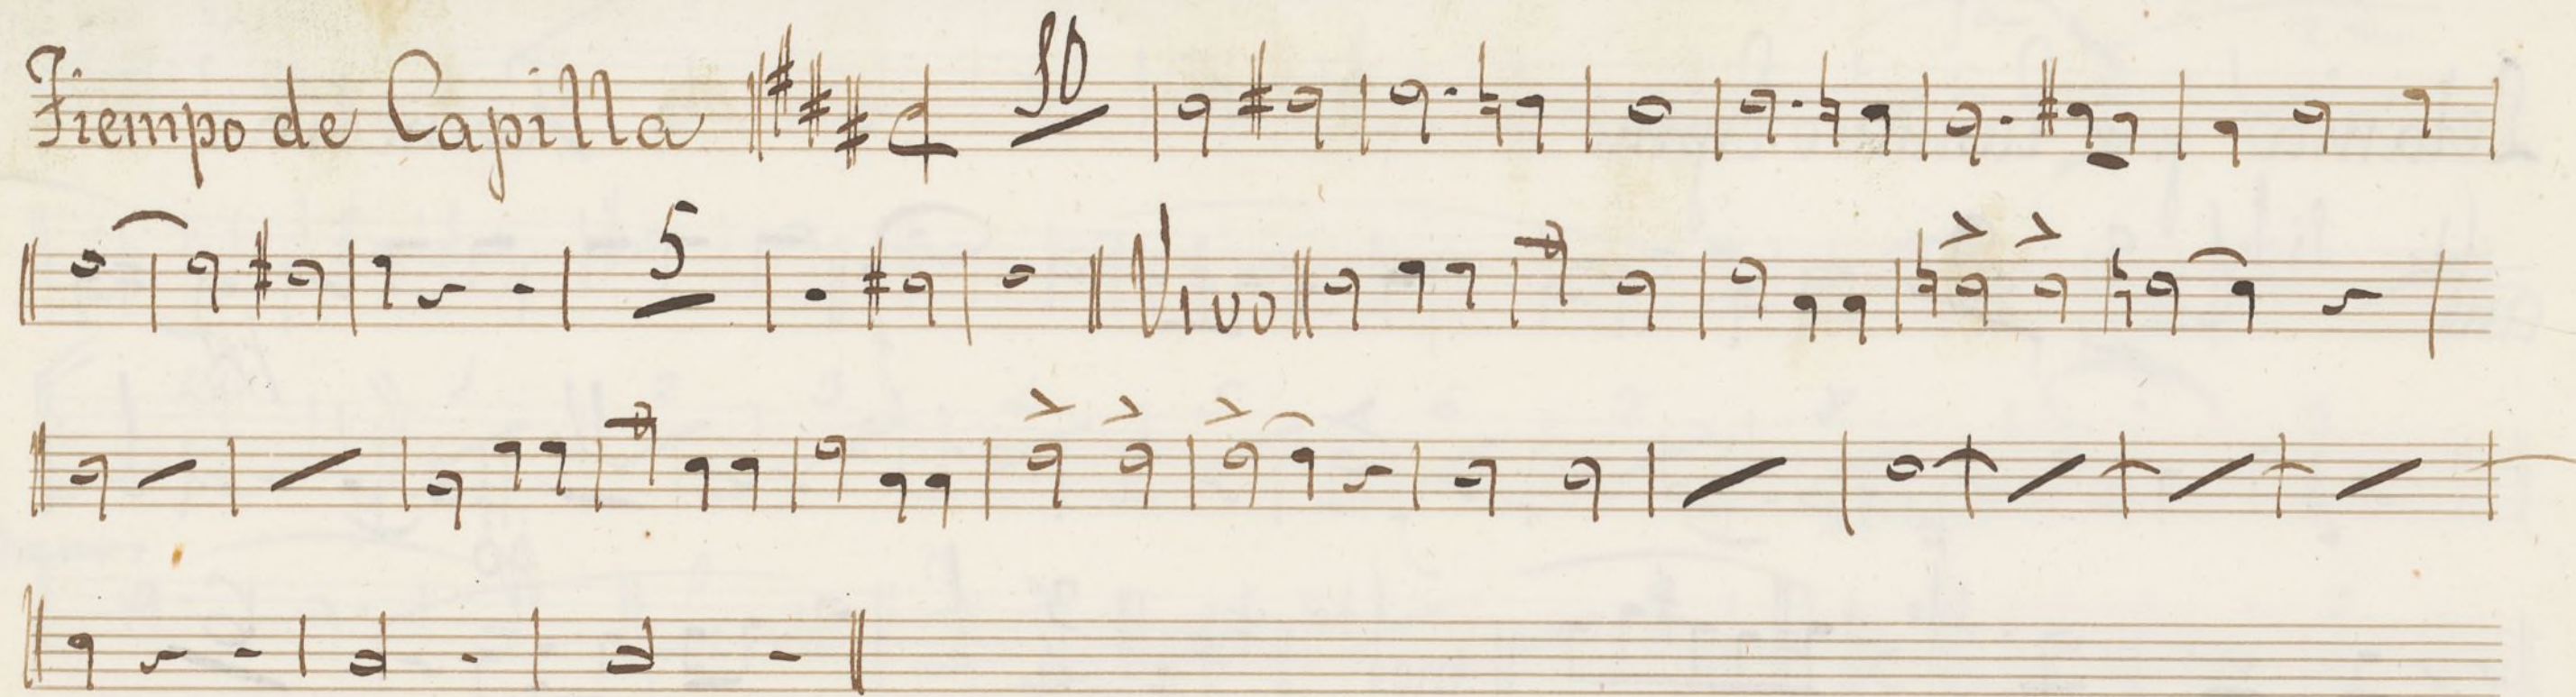 Tiempo de Capilla 10
5 Vivo